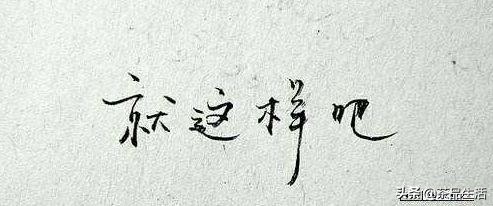 就这样吧
头条@茶品生活